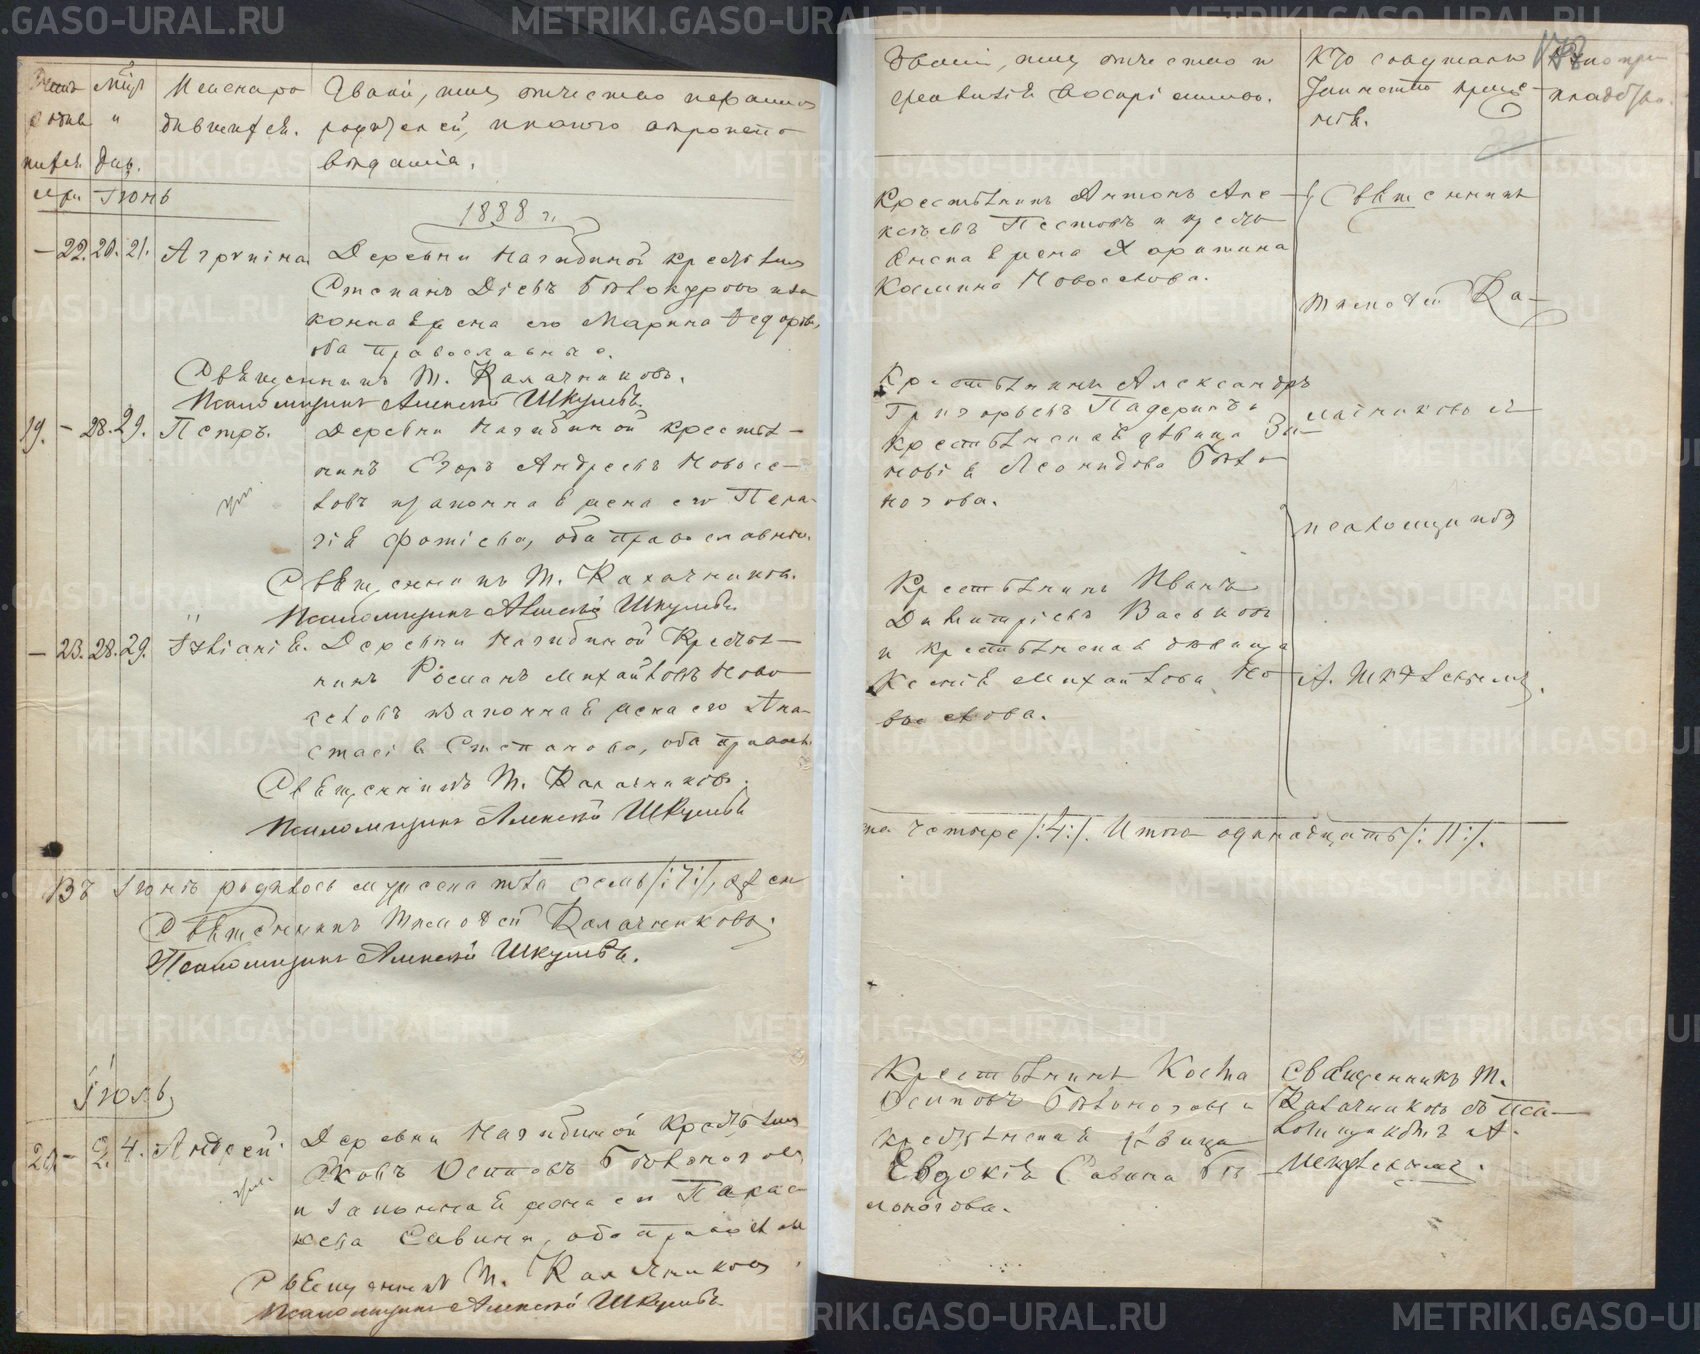 METRIKI.GASO-URAL.RU
Мѣсяцъ
Имена ро
Званіе, имя, отчество и фамилія
дившихся.
родителей, и какого вѣроиспо-
вѣданія.
Іюнь
1888 г.
22. 20. 21. Агрипина
Деревни Нагибиной крестьянинъ
Степанъ
законная жена его Марина Федорова,
оба православные.
Священникъ Т. Калачниковъ.
Псаломщикъ Алексѣй Шкулевъ
19. – 28. 29. Петръ.
Деревни Нагибиной крестья-
нинъ Егоръ Андреевъ Новосе-
ловъ и законная жена его Пела-
гія Фотіева, оба православные.
Священникъ Т. Калачниковъ.
Псаломщикъ Алексѣй Шкулевъ
– 23. 28. 29. Іуліанія.
Деревни Нагибиной Крестья-
нинъ Романъ Михайловъ Ново-
селовъ и законная жена его Ана-
стасія Степанова, оба правосл.
Священникъ Т. Калачниковъ.
Псаломщикъ Алексѣй Шкулевъ
Въ Іюнѣ родилось мужеска пола семь /:7:/, жен
Священникъ Тимофей Калачниковъ.
Псаломщикъ Алексѣй Шкулевъ.
Іюль
20. – 2. 4. Андрей.
Деревни Нагибиной Крестьянинъ
Яковъ Осиповъ Бѣлоногов
и законная жена его Параск-
Савина, оба правосл
Священникъ Т. Калачниковъ
Псаломщикъ Алексѣй Шкулевъ
Званіе, имя, отчество и
фамилія воспріемниковъ.
Кто совершалъ
таинство креще-
нія.
178
Крестьянинъ Антонъ Але-
ксѣевъ Пестовъ и кресть-
янская жена Харитина
Космина Новоселова.
Священникъ
Тимофей Ка-
Крестьянинъ Александръ
Григорьевъ Падеринъ и
крестьянская дѣвица Зи-
новія Леонидова Бѣло-
ногова.
лачниковъ и
псаломщикъ
Крестьянинъ Иванъ
Димитріевъ Васьковъ
и крестьянская дѣвица
Ксенія Михайлова Но-
воселова.
А. Шкулевъ.
ска четыре /:4:/. Итого одинадцать /:11:/.
Крестьянинъ Косма
Осиповъ Бѣлоноговъ и
крестьянская дѣвица
Евдокія Савина Бѣ-
лоногова.
Священникъ Т.
Калачниковъ съ пса-
ломщикомъ А.
Шкулевымъ.